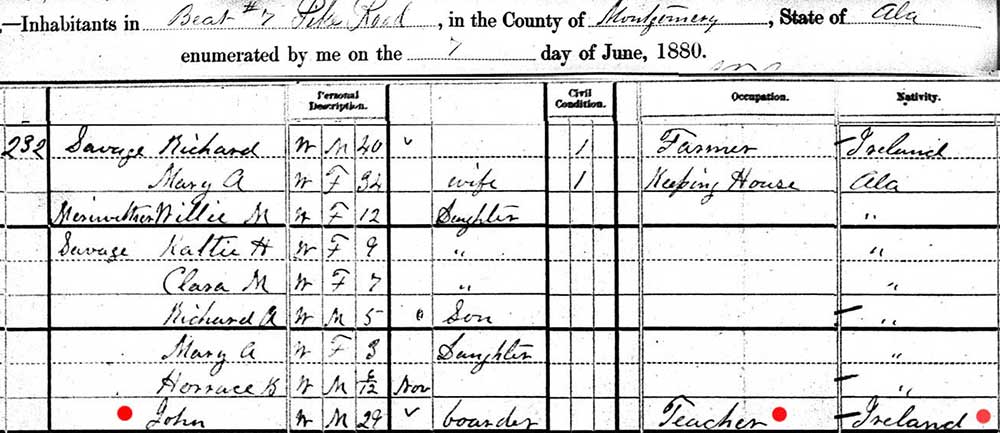 —Inhabitants in Beat #7 Pike Road, in the County of Montgomery, State of Ala
enumerated by me on the 7 day of June, 1880.
Personal Description. Civil Condition. Occupation. Nativity.
232 Savage Richard W M 40 1 Farmer Ireland
Mary A W F 34 wife 1 Keeping House Ala
Meriwether Willie M W F 12 Daughter "
Savage Kattie H W F 9 " "
Clara M W F 7 " "
Richard A W M 5 Son "
Mary A W F 3 Daughter "
Horrace B W M 6/12 Nov "
John W M 29 boarder Teacher Ireland